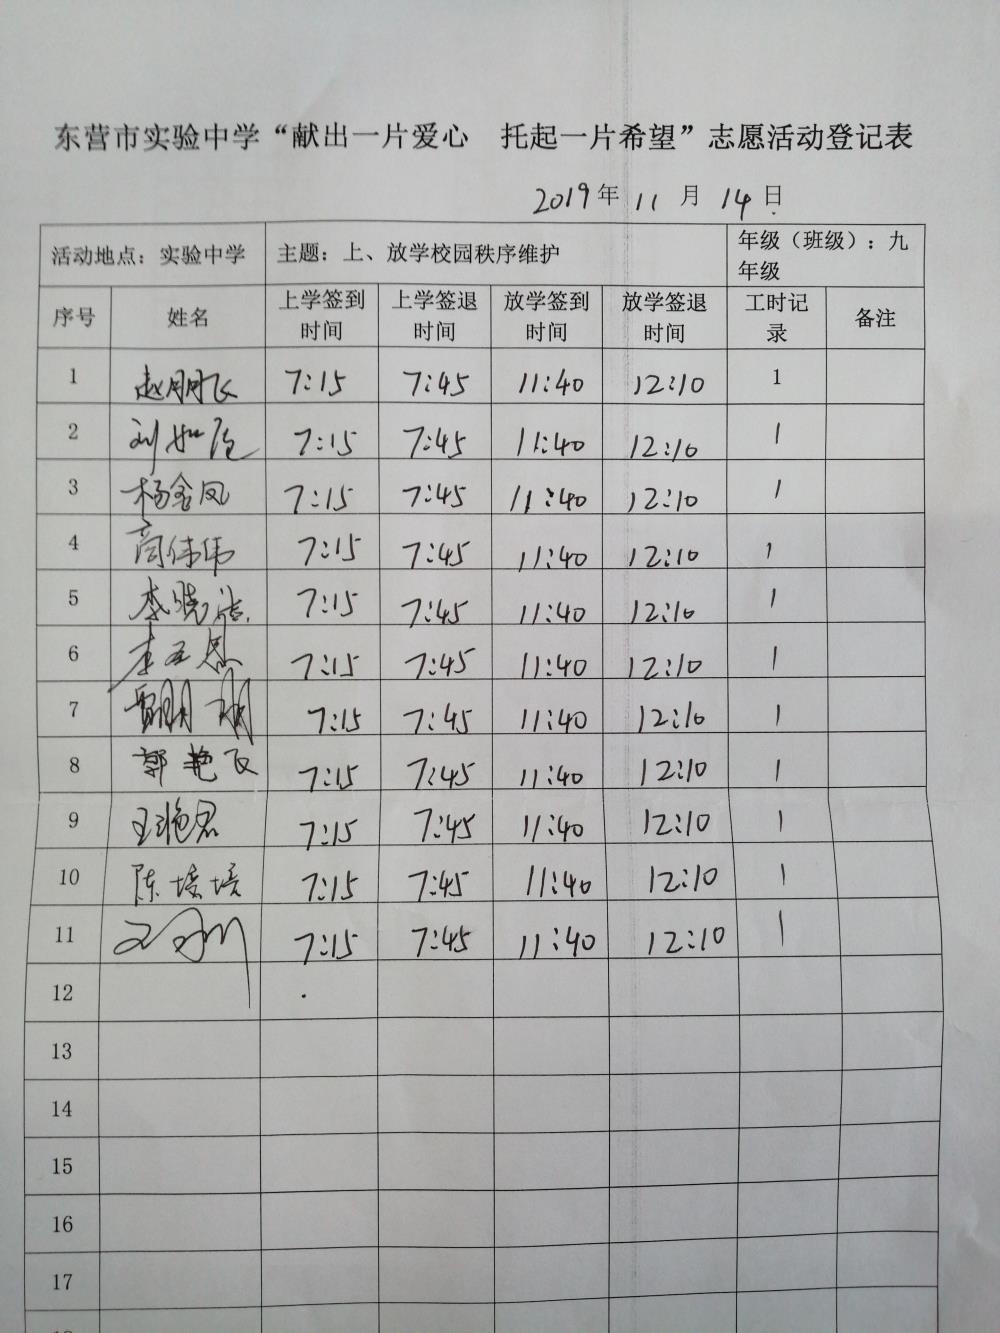 东营市实验中学“献出一片爱心 托起一片希望”志愿活动登记表
2019年 11 月 14 日
活动地点：实验中学 主题：上、放学校园秩序维护 年级（班级）：九年级
序号 姓名 上学签到时间 上学签退时间 放学签到时间 放学签退时间 工时记录 备注
1 赵朋飞 7:15 7:45 11:40 12:10 1
2 刘 7:15 7:45 11:40 12:10 1
3 杨金凤 7:15 7:45 11:40 12:10 1
4 7:15 7:45 11:40 12:10 1
5 李晓洁 7:15 7:45 11:40 12:10 1
6 李 7:15 7:45 11:40 12:10 1
7 7:15 7:45 11:40 12:10 1
8 郭艳飞 7:15 7:45 11:40 12:10 1
9 王艳君 7:15 7:45 11:40 12:10 1
10 陈培培 7:15 7:45 11:40 12:10 1
11 7:15 7:45 11:40 12:10 1
12
13
14
15
16
17